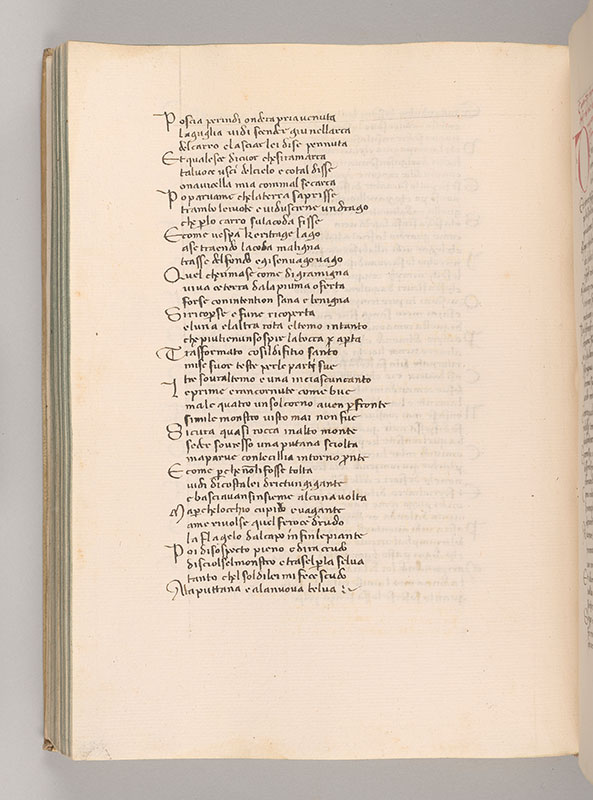 Poscia perindi ondera pria venuta
laguglia vidi scender giu nellarca
del carro e lasciar lei di se pennuta
Et quale sce di cuor che si ramarca
tal voce usci del cielo e cotal disse
o navicella mia com mal se carca
Po parv ame che la terra saprisse
trambo le rote e vidi uscirne un drago
che plo carro su la coda fisse
E come vespa che ritrage lago
a se traendo la coda maligna
trasse del fondo e gisen vago vago
Quel che rimase come di gramigna
viva ce terra da la piuma oferta
forse con intention sana e benigna
Si ricopse e fune ricoperta
e luna e laltra rota el temo in tanto
che piu tien un sospir la bocca x apta
Trasformato cosi dificio santo
mise fuor teste per le parti sue
tre soural temo e una in ciascun canto
Le prime eran cornute come bue
ma le quatro un sol corno aven p fronte
simile monstro visto mai non fue
Sicura quasi rocca in alto monte
seder souresso una putana sciolta
maparve con le cillia intorno pnte
E come p che no li fosse tolta
vidi di costa lei dricto un gigante
e basciavansi insieme alcuna volta
Ma p che locchio cupido e vagante
a me rivolse quel feroce drudo
la flagelo dal capo in fin le piante
Poi di sospecto pieno e dira crudo
disciolsel monstro e trasel p la selva
tanto chel sol di lei mi fece scudo
A la puttana e a la nuova belva